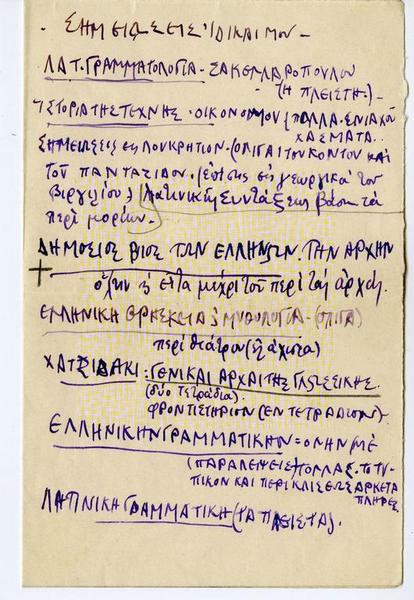 · ΣΗΜΕΙΩΣΕΙΣ ἸΔΙΚΑΙ ΜΟΥ -
ΛΑΤ. ΓΡΑΜΜΑΤΟΛΟΓΙΑ - ΣΑΚΕΛΛΑΡΟΠΟΥΛΟΥ
(Ἡ ΠΛΕΙΣΤΗ.) -
ἹΣΤΟΡΙΑ ΤΗΣ ΤΕΧΝΗΣ - ΟΙΚΟΝΟΜΟΥ (ΠΟΛΛΑ. ΕΝΙΑΧΟΥ
ΧΑΣΜΑΤΑ.
ΣΗΜΕΙΩΣΕΙΣ εις ΛΟΥΚΡΗΤΙΟΝ - (ΟΛΙΓΑΙ ΤΟΥ ΚΟΝΤΟΥ ΚΑΙ
ΤΟΥ ΠΑΝΤΑΖΙΔΟΥ. (ἐπίσης εἰς γεωργικὰ τοῦ
Βιργιλίου) Λατινικῆς Συντάξεως βάσει τὰ
περὶ μορίων. -
ΔΗΜΟΣΙΟΣ ΒΙΟΣ ΤΩΝ ΕΛΛΗΝΩΝ. ΤΗΝ ΑΡΧΗΝ
ὅλην εἶτα μέχρι τοῦ περὶ τὰς ἀρχάς.
ΕΛΛΗΝΙΚΗ ΘΡΗΣΚΕΙΑ & ΜΥΘΟΛΟΓΙΑ - (ΟΛΙΓΑ)
περὶ θεάτρου (ἐλάχιστα)
ΧΑΤΖΙΔΑΚΙ: ΓΕΝΙΚΑΙ ΑΡΧΑΙ ΤΗΣ ΓΛΩΣΣΙΚΗΣ.
(δύο τετράδια).
ΦΡΟΝΤΙΣΤΗΡΙΟΝ (ΕΝ ΤΕΤΡΑΔΙΟΝ)
ΕΛΛΗΝΙΚΗΝ ΓΡΑΜΜΑΤΙΚΗΝ = ΟΛΗΝ (ΜΕ
(ΠΑΡΑΛΕΙΨΕΙΣ) ΠΟΛΛΑΣ. ΤΟ ΤΥ-
ΠΙΚΟΝ ΚΑΙ ΠΕΡΙ ΚΛΙΣΕΩΣ ΑΡΚΕΤΑ
ΠΛΗΡΕΣ.
ΛΑΤΙΝΙΚΗ ΓΡΑΜΜΑΤΙΚΗ (ΤΑ ΠΛΕΙΣΤΑ).